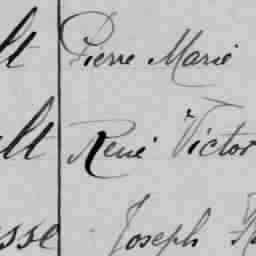 lt Pierre Marie
ult René Victor
sse Joseph